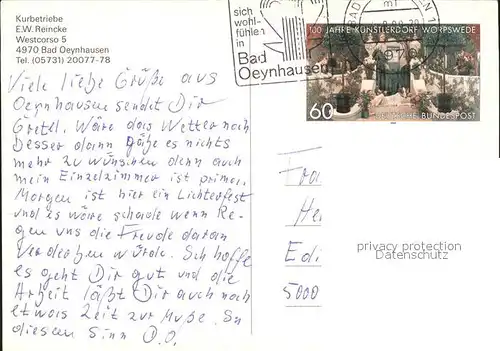 Kurbetriebe
E.W. Reincke
Westcorso 5
4970 Bad Oeynhausen
Tel. (05731) 20077-78
sich
wohl-
fühlen
in
Bad
Oeynhausen
100 JAHRE KÜNSTLERDORF WORPSWEDE
60
DEUTSCHE BUNDESPOST
Viele liebe Grüße aus
Oeynhausen sendet Dir
Gretel. Wäre das Wetter noch
besser dann gäbe es nichts
mehr zu wünschen denn auch
mein Einzelzimmer ist prima.
Morgen ist hier ein Lichterfest
und es wäre schade wenn Re-
gen uns die Freude daran
verderben würde. Ich hoffe
es geht Dir gut und die
Arbeit läßt Dir auch noch
etwas Zeit zur Muße. In
diesem Sinn D.O.
Fra
He
Edi
5000
privacy protection
Datenschutz